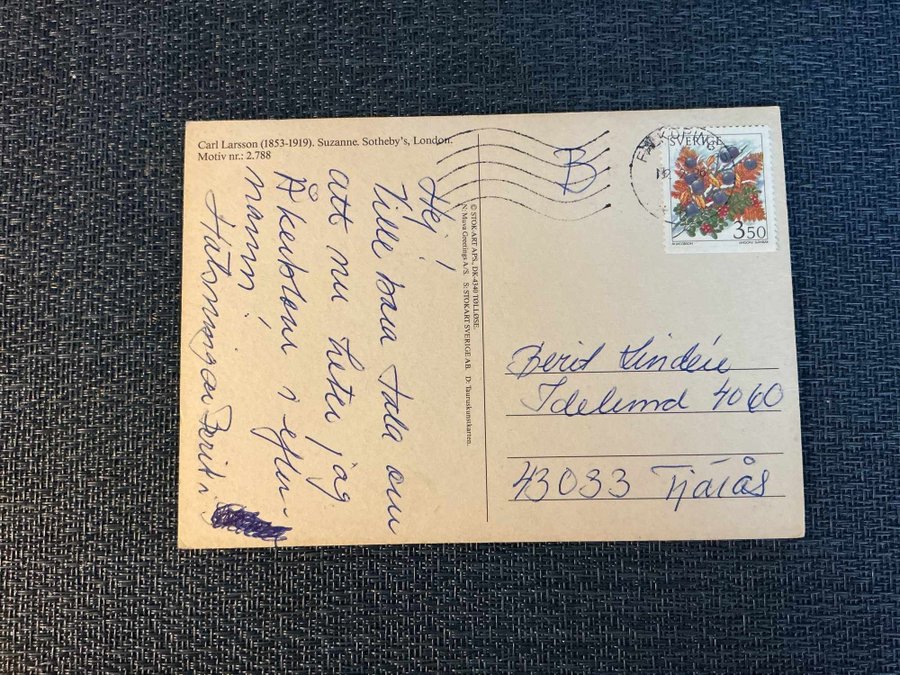 Carl Larsson (1853-1919). Suzanne. Sotheby's, London.
Motiv nr.: 2.788
Hej!
Ville bara tala om
att nu heter jag
i efter-
namn!
Berit
© STOK-ART APS., DK-4340 TØLLØSE.
N: Mava Greetings A/S. S: STOKART SVERIGE AB. D: Tauruskunstkarten.
B
FALKÖPING
SVERIGE
3 50
Berit Lindén
Idelund 4060
43033 Fjärås